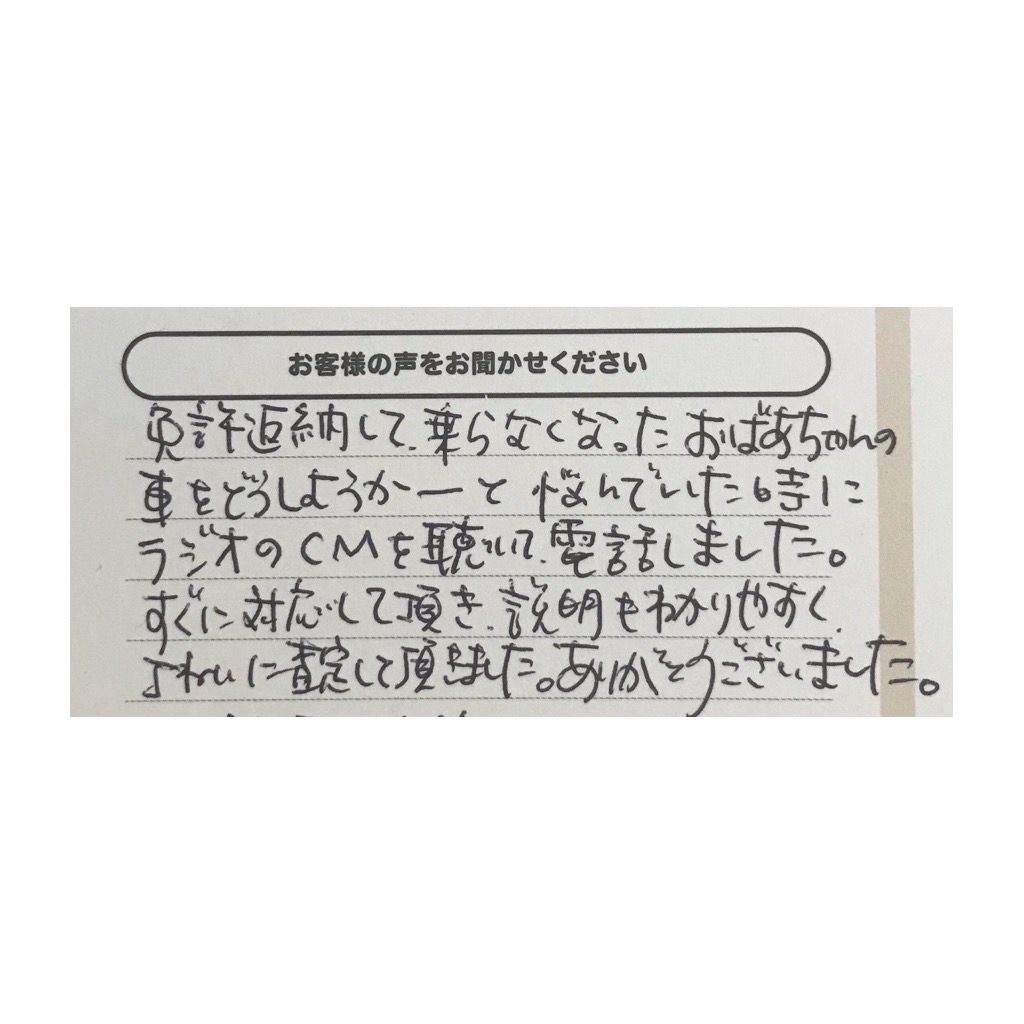 お客様の声をお聞かせください
免許返納して、乗らなくなったおばあちゃんの
車をどうしようかーと悩んでいた時に
ラジオのCMを聴いて、電話しました。
すぐに対応して頂き、説明もわかりやすく、
に査定して頂きました。ありがとうございました。